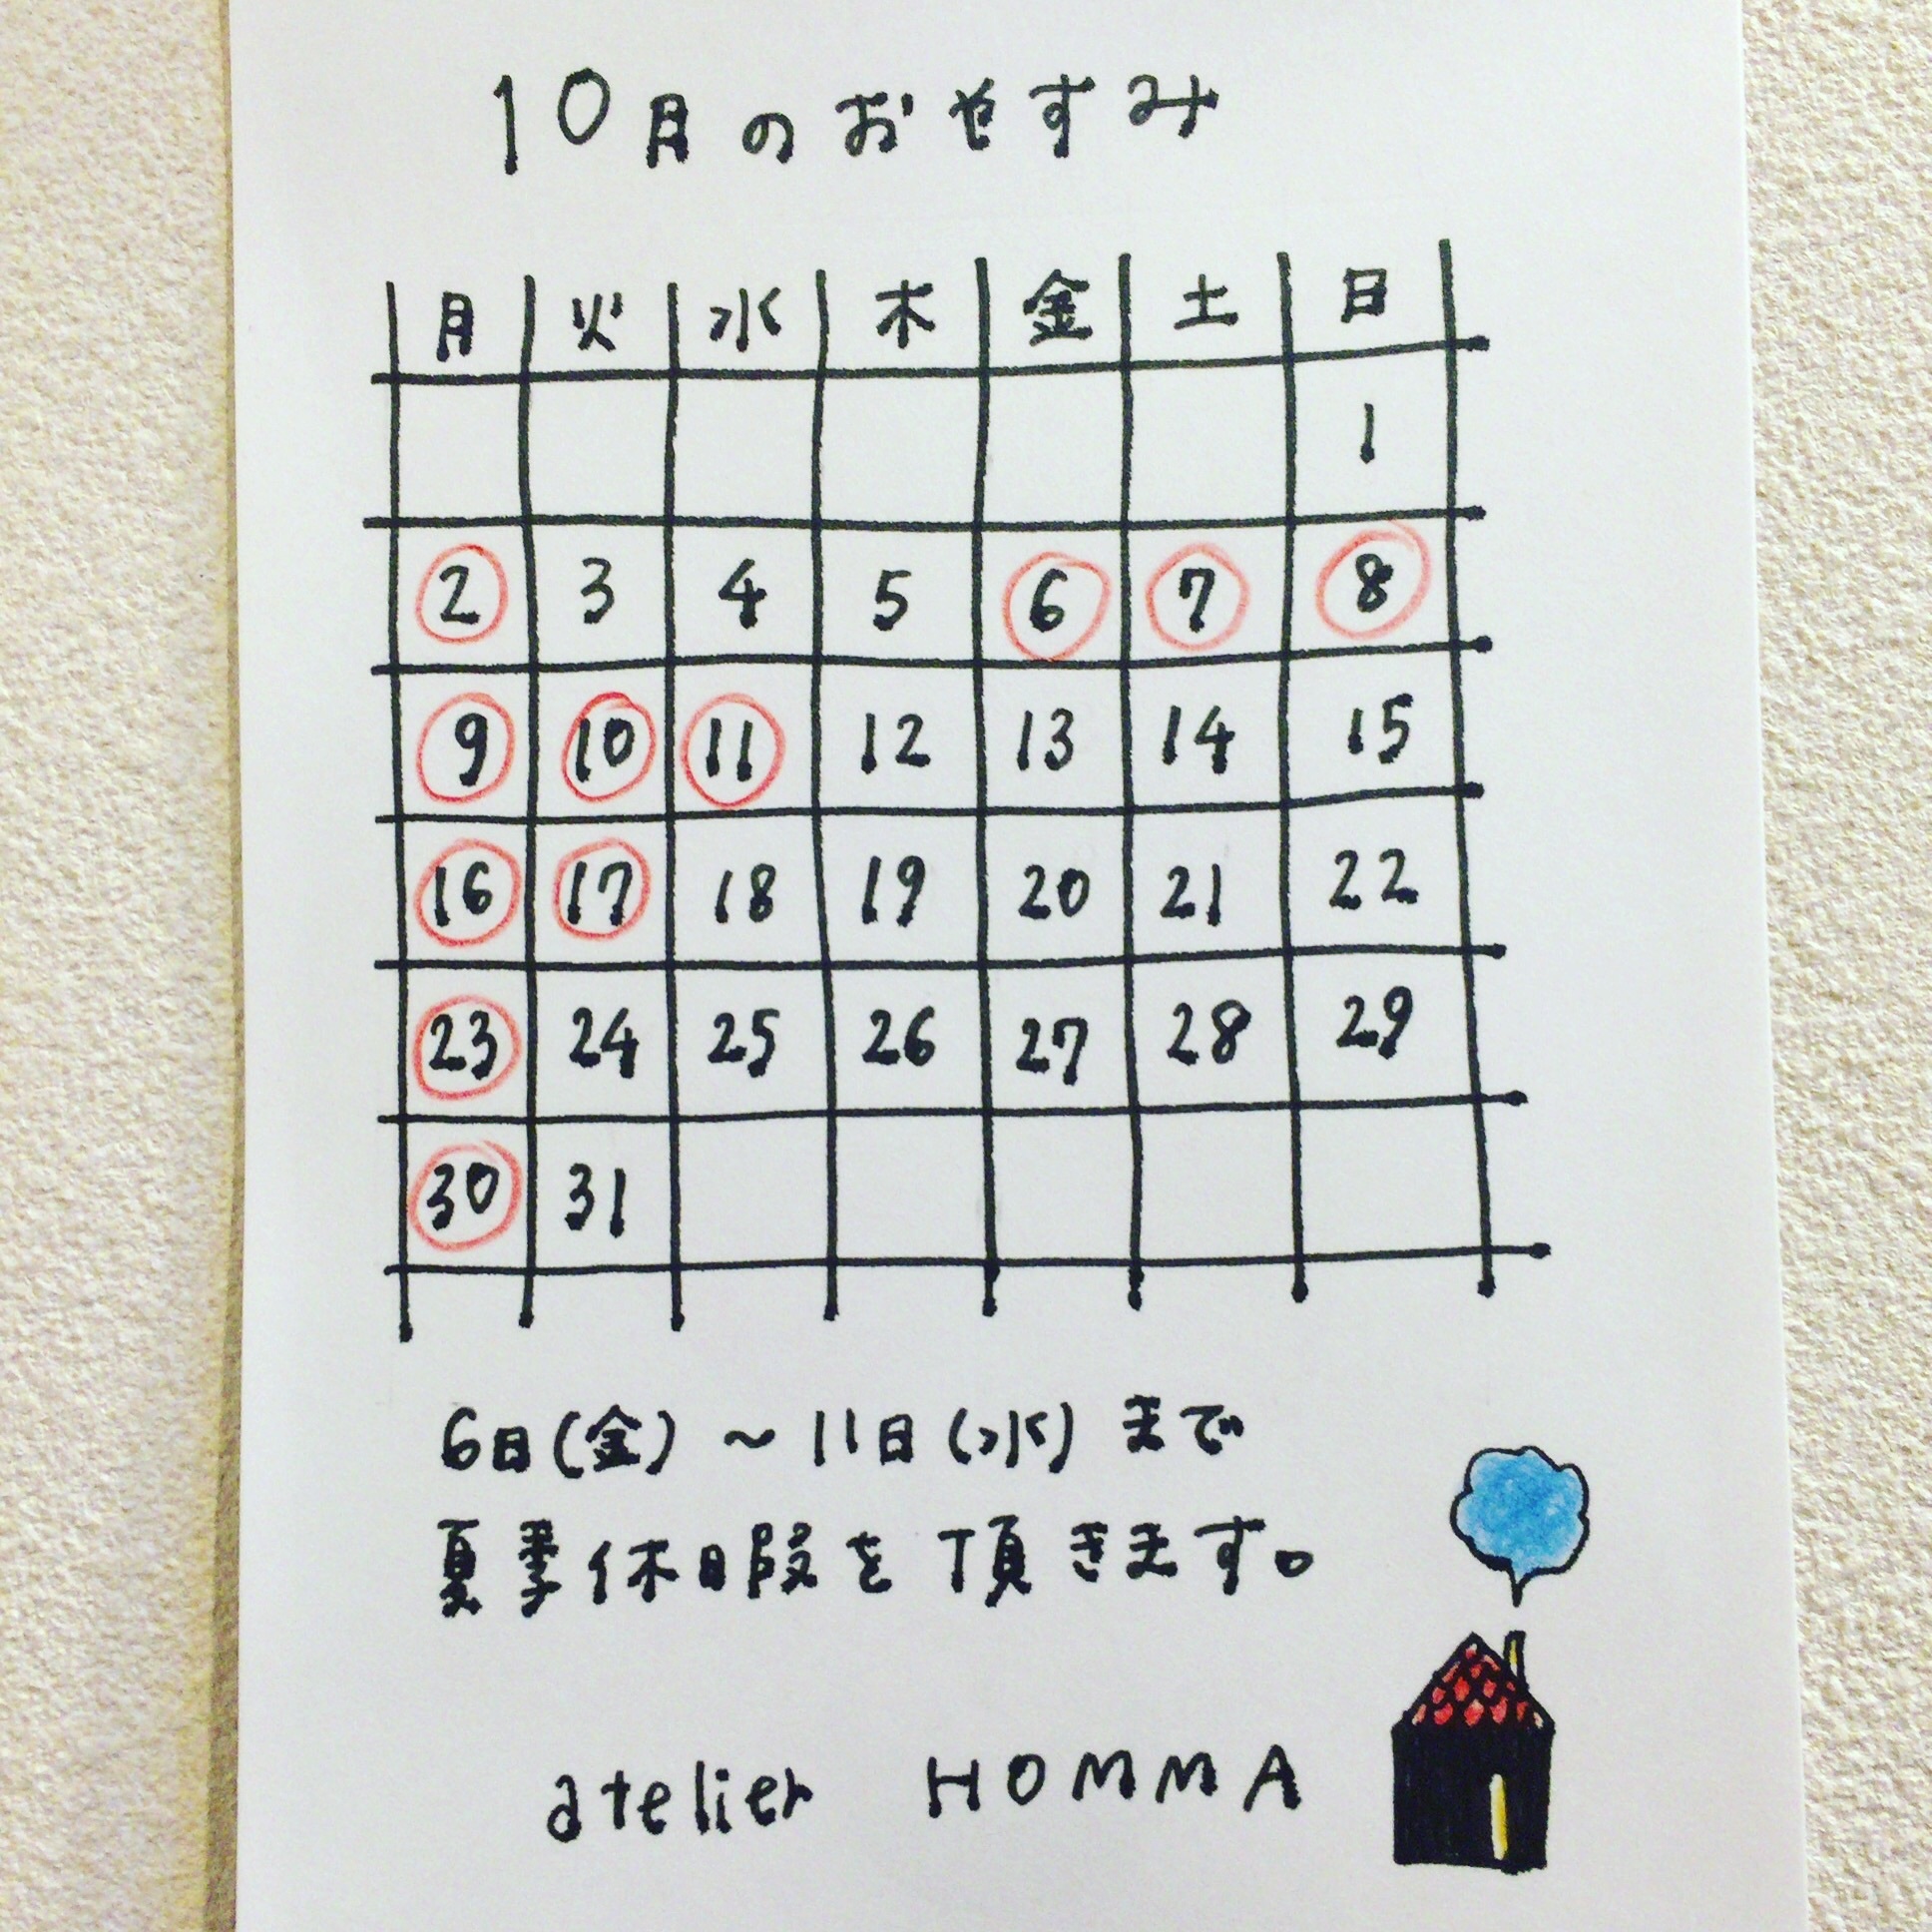 10月のおやすみ
月 火 水 木 金 土 日
1
2 3 4 5 6 7 8
9 10 11 12 13 14 15
16 17 18 19 20 21 22
23 24 25 26 27 28 29
30 31
6日(金)～11日(水)まで
夏季休暇を頂きます。
atelier HOMMA